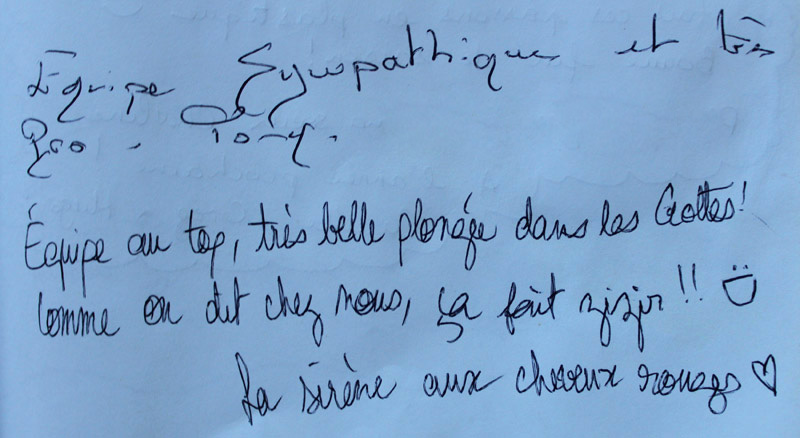 Équipe Sympathique et très
Pro. Tony.
Équipe au top, très belle plongée dans les Grottes!
Comme on dit chez nous, ça fait zizir!!
La sirène aux cheveux rouges ♡